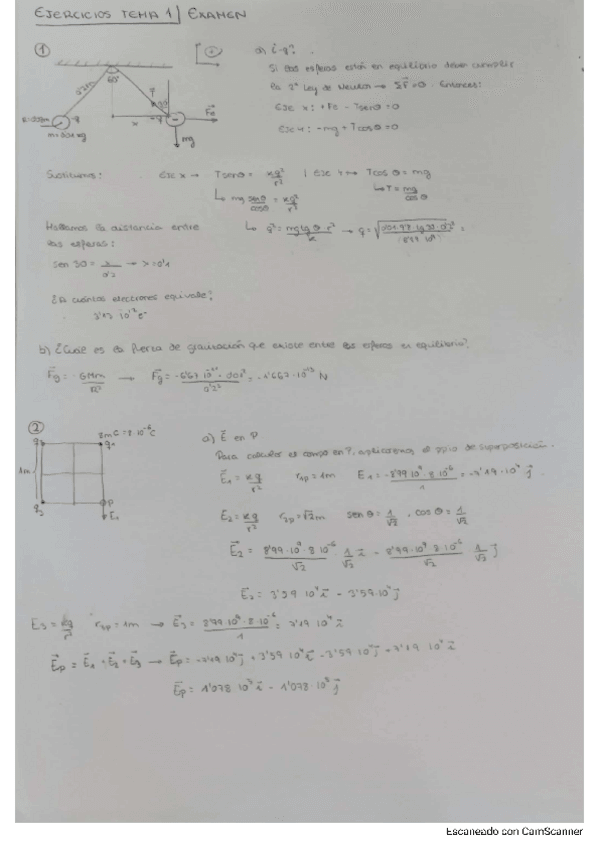 EJERCICIOS TEMA 1 | EXAMEN
① a) ¿-q?
Si las esferas están en equilibrio deben cumplir
la 2ª Ley de Newton → ΣF = 0. Entonces:
Eje x: +Fe - Tsenθ = 0
Eje y: -mg + Tcosθ = 0
60°
0'2m
T
Fe
x
-q
m = 0'01 kg
mg
Sustituimos: Eje x → Tsenθ = kq²/r² | Eje y → Tcosθ = mg
↳ mg senθ/cosθ = kq²/r² ↳ T = mg/cosθ
Hallamos la distancia entre
las esferas:
↳ q² = mg tgθ · r²/k → q =
sen 30 = x/0'2 → x = 0'1
¿A cuántos electrones equivale?
b) ¿Cuál es la fuerza de gravitación que existe entre las esferas en equilibrio?
Fg = -GMm/R² → Fg = = -1'667 · 10⁻¹³ N
② a) E en P
Para calcular el campo en P, aplicaremos el ppio de superposición.
1m
P
E₁
E₁ = kq/r² r₁p = 1m E₁ = -8'99 · 10⁹ · 8 · 10⁻⁶/1 = -7'19 · 10⁴ j
E₂ = kq/r² r₂p = √2 m senθ = 1/√2 , cosθ = 1/√2
E₂ = 8'99 · 10⁹ · 8 · 10⁻⁶/√2 1/√2 i - 8'99 · 10⁹ · 8 · 10⁻⁶/√2 1/√2 j
E₂ = 3'59 · 10⁴ i - 3'59 · 10⁴ j
E₃ = kq/r² r₃p = 1m → E₃ = 8'99 · 10⁹ · 8 · 10⁻⁶/1 = 7'19 · 10⁴ i
Ep = E₁ + E₂ + E₃ → Ep = -7'19 · 10⁴ j + 3'59 · 10⁴ i - 3'59 · 10⁴ j + 7'19 · 10⁴ i
Ep = 1'078 · 10⁵ i - 1'078 · 10⁵ j
Escaneado con CamScanner